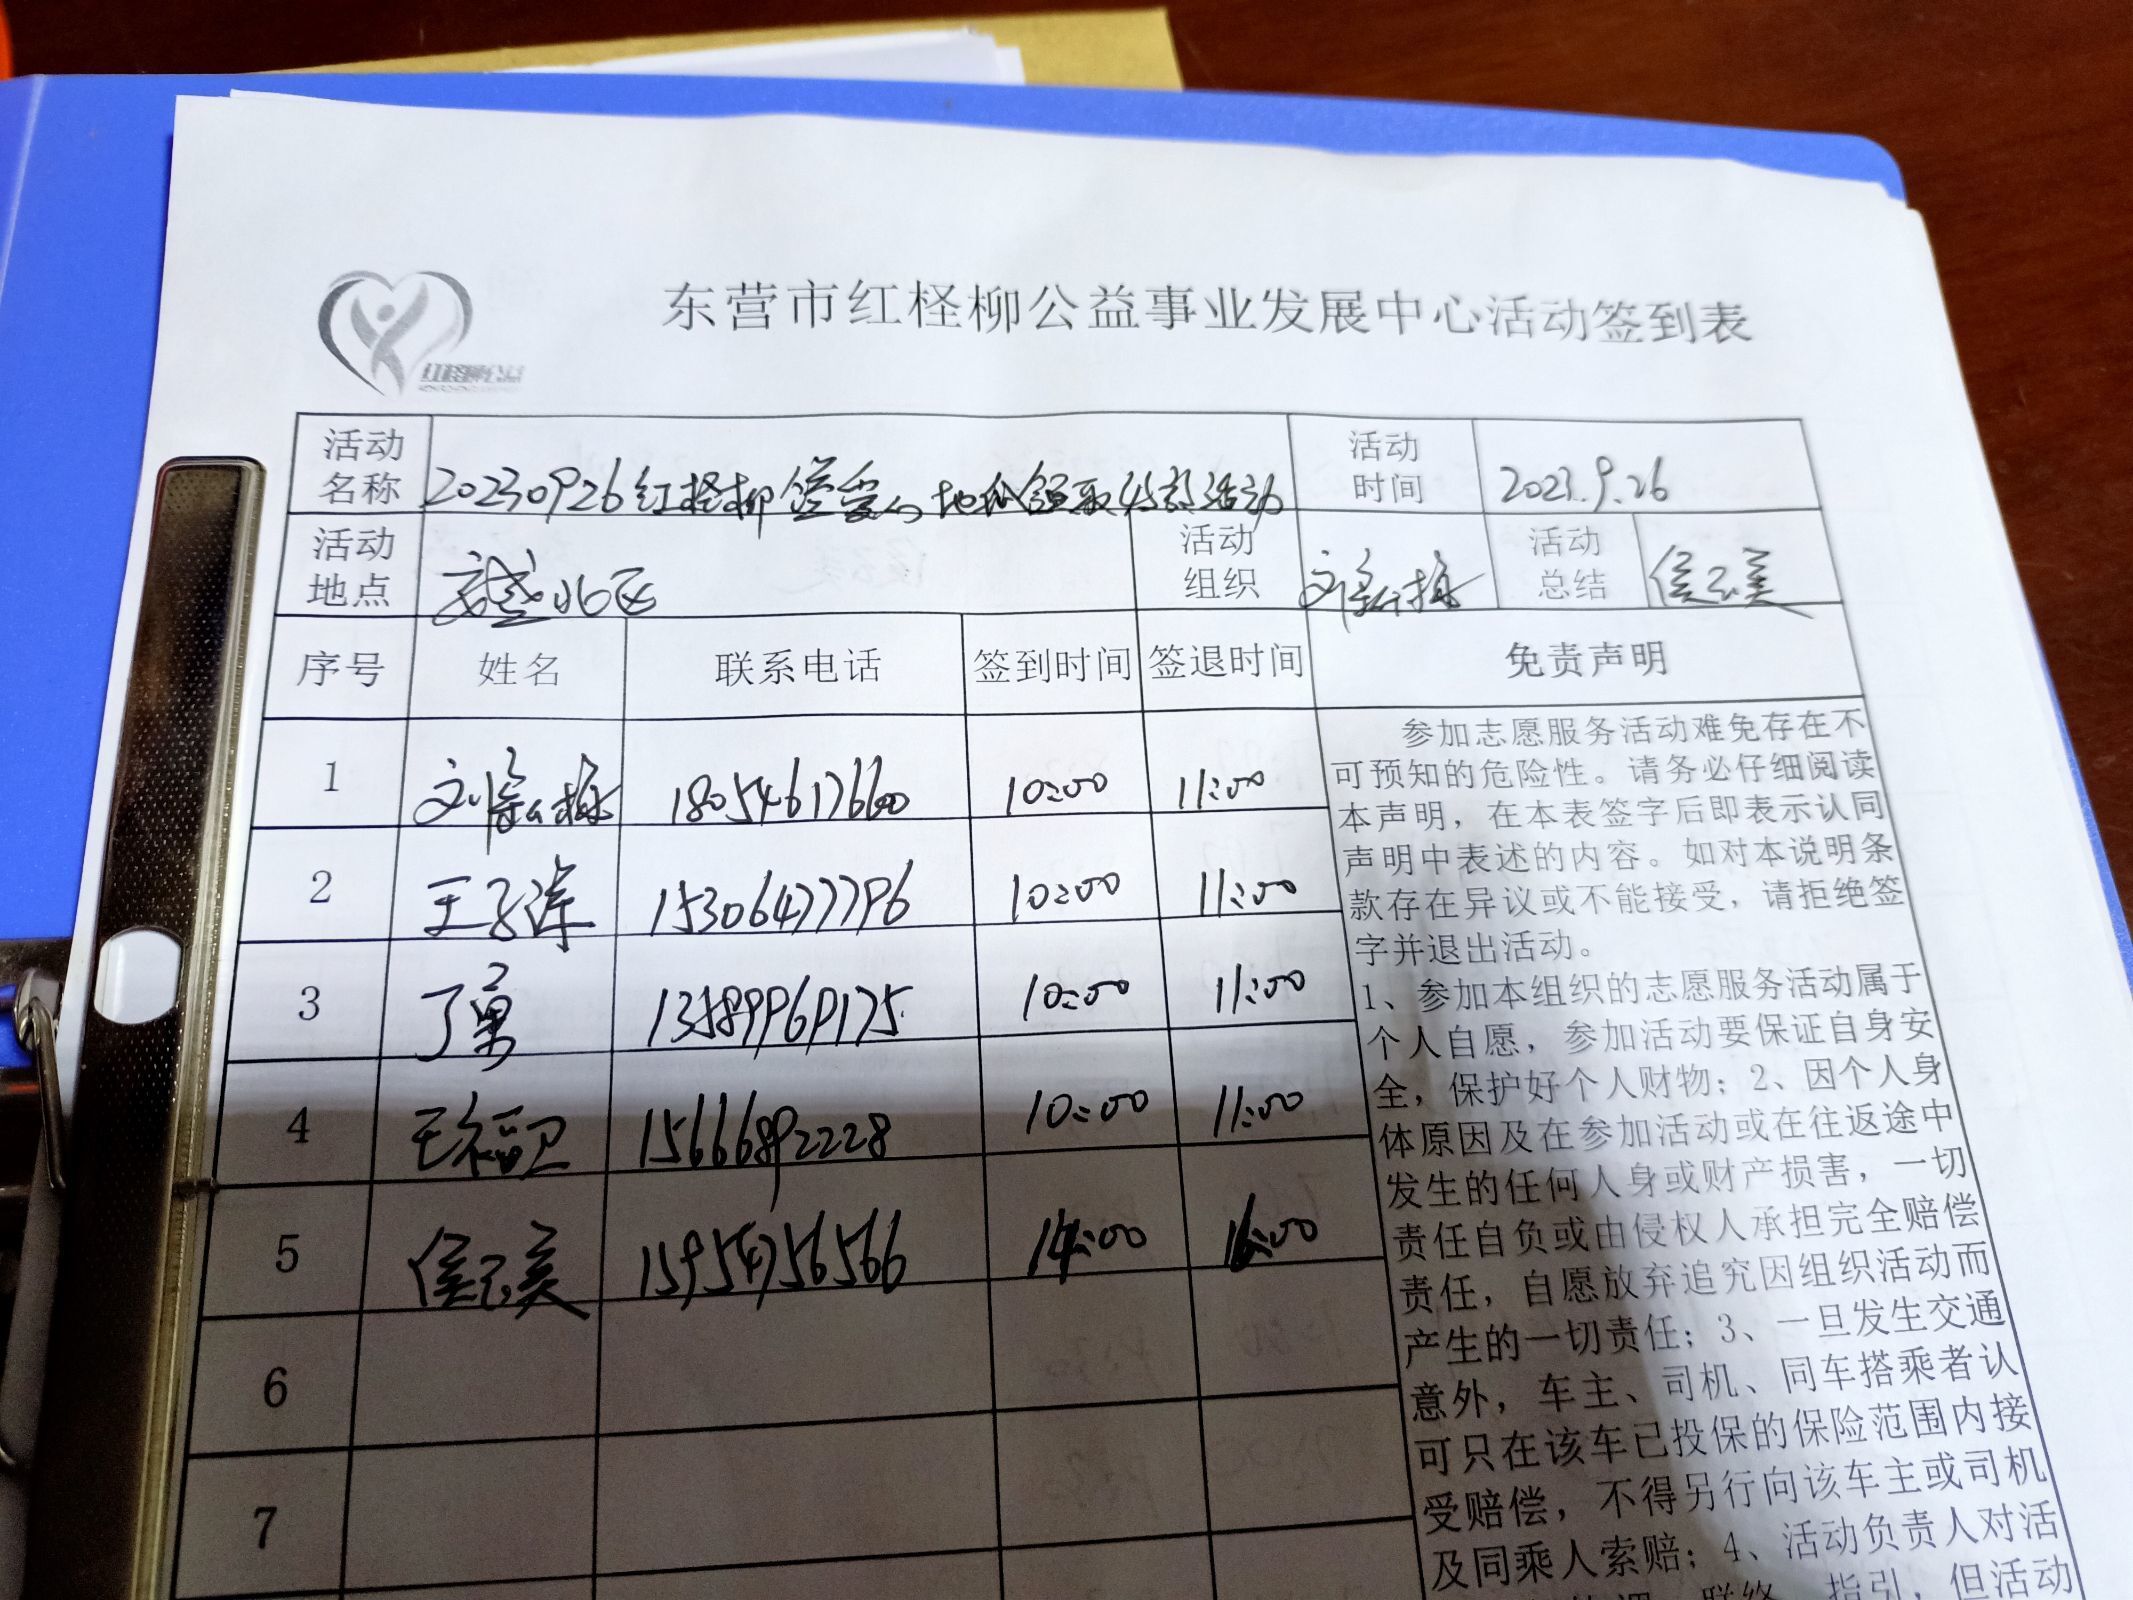 东营市红柽柳公益事业发展中心活动签到表
红柽柳公益
活动名称 20230926红柽柳 地瓜领取 活动 活动时间 2023.9.26
活动地点 北区 活动组织 活动总结 侯云美
序号 姓名 联系电话 签到时间 签退时间 免责声明
1 18054617660 10:00 11:00
2 王子莲 15306477796 10:00 11:00
3 丁勇 13589969175 10:00 11:00
4 王福卫 15666892228 10:00 11:00
5 侯云美 15954756566 14:00 16:00
6
7
参加志愿服务活动难免存在不
可预知的危险性。请务必仔细阅读
本声明，在本表签字后即表示认同
声明中表述的内容。如对本说明条
款存在异议或不能接受，请拒绝签
字并退出活动。
1、参加本组织的志愿服务活动属于
个人自愿，参加活动要保证自身安
全，保护好个人财物；2、因个人身
体原因及在参加活动或在往返途中
发生的任何人身或财产损害，一切
责任自负或由侵权人承担完全赔偿
责任，自愿放弃追究因组织活动而
产生的一切责任；3、一旦发生交通
意外，车主、司机、同车搭乘者认
可只在该车已投保的保险范围内接
受赔偿，不得另行向该车主或司机
及同乘人索赔；4、活动负责人对活
联络、指引，但活动